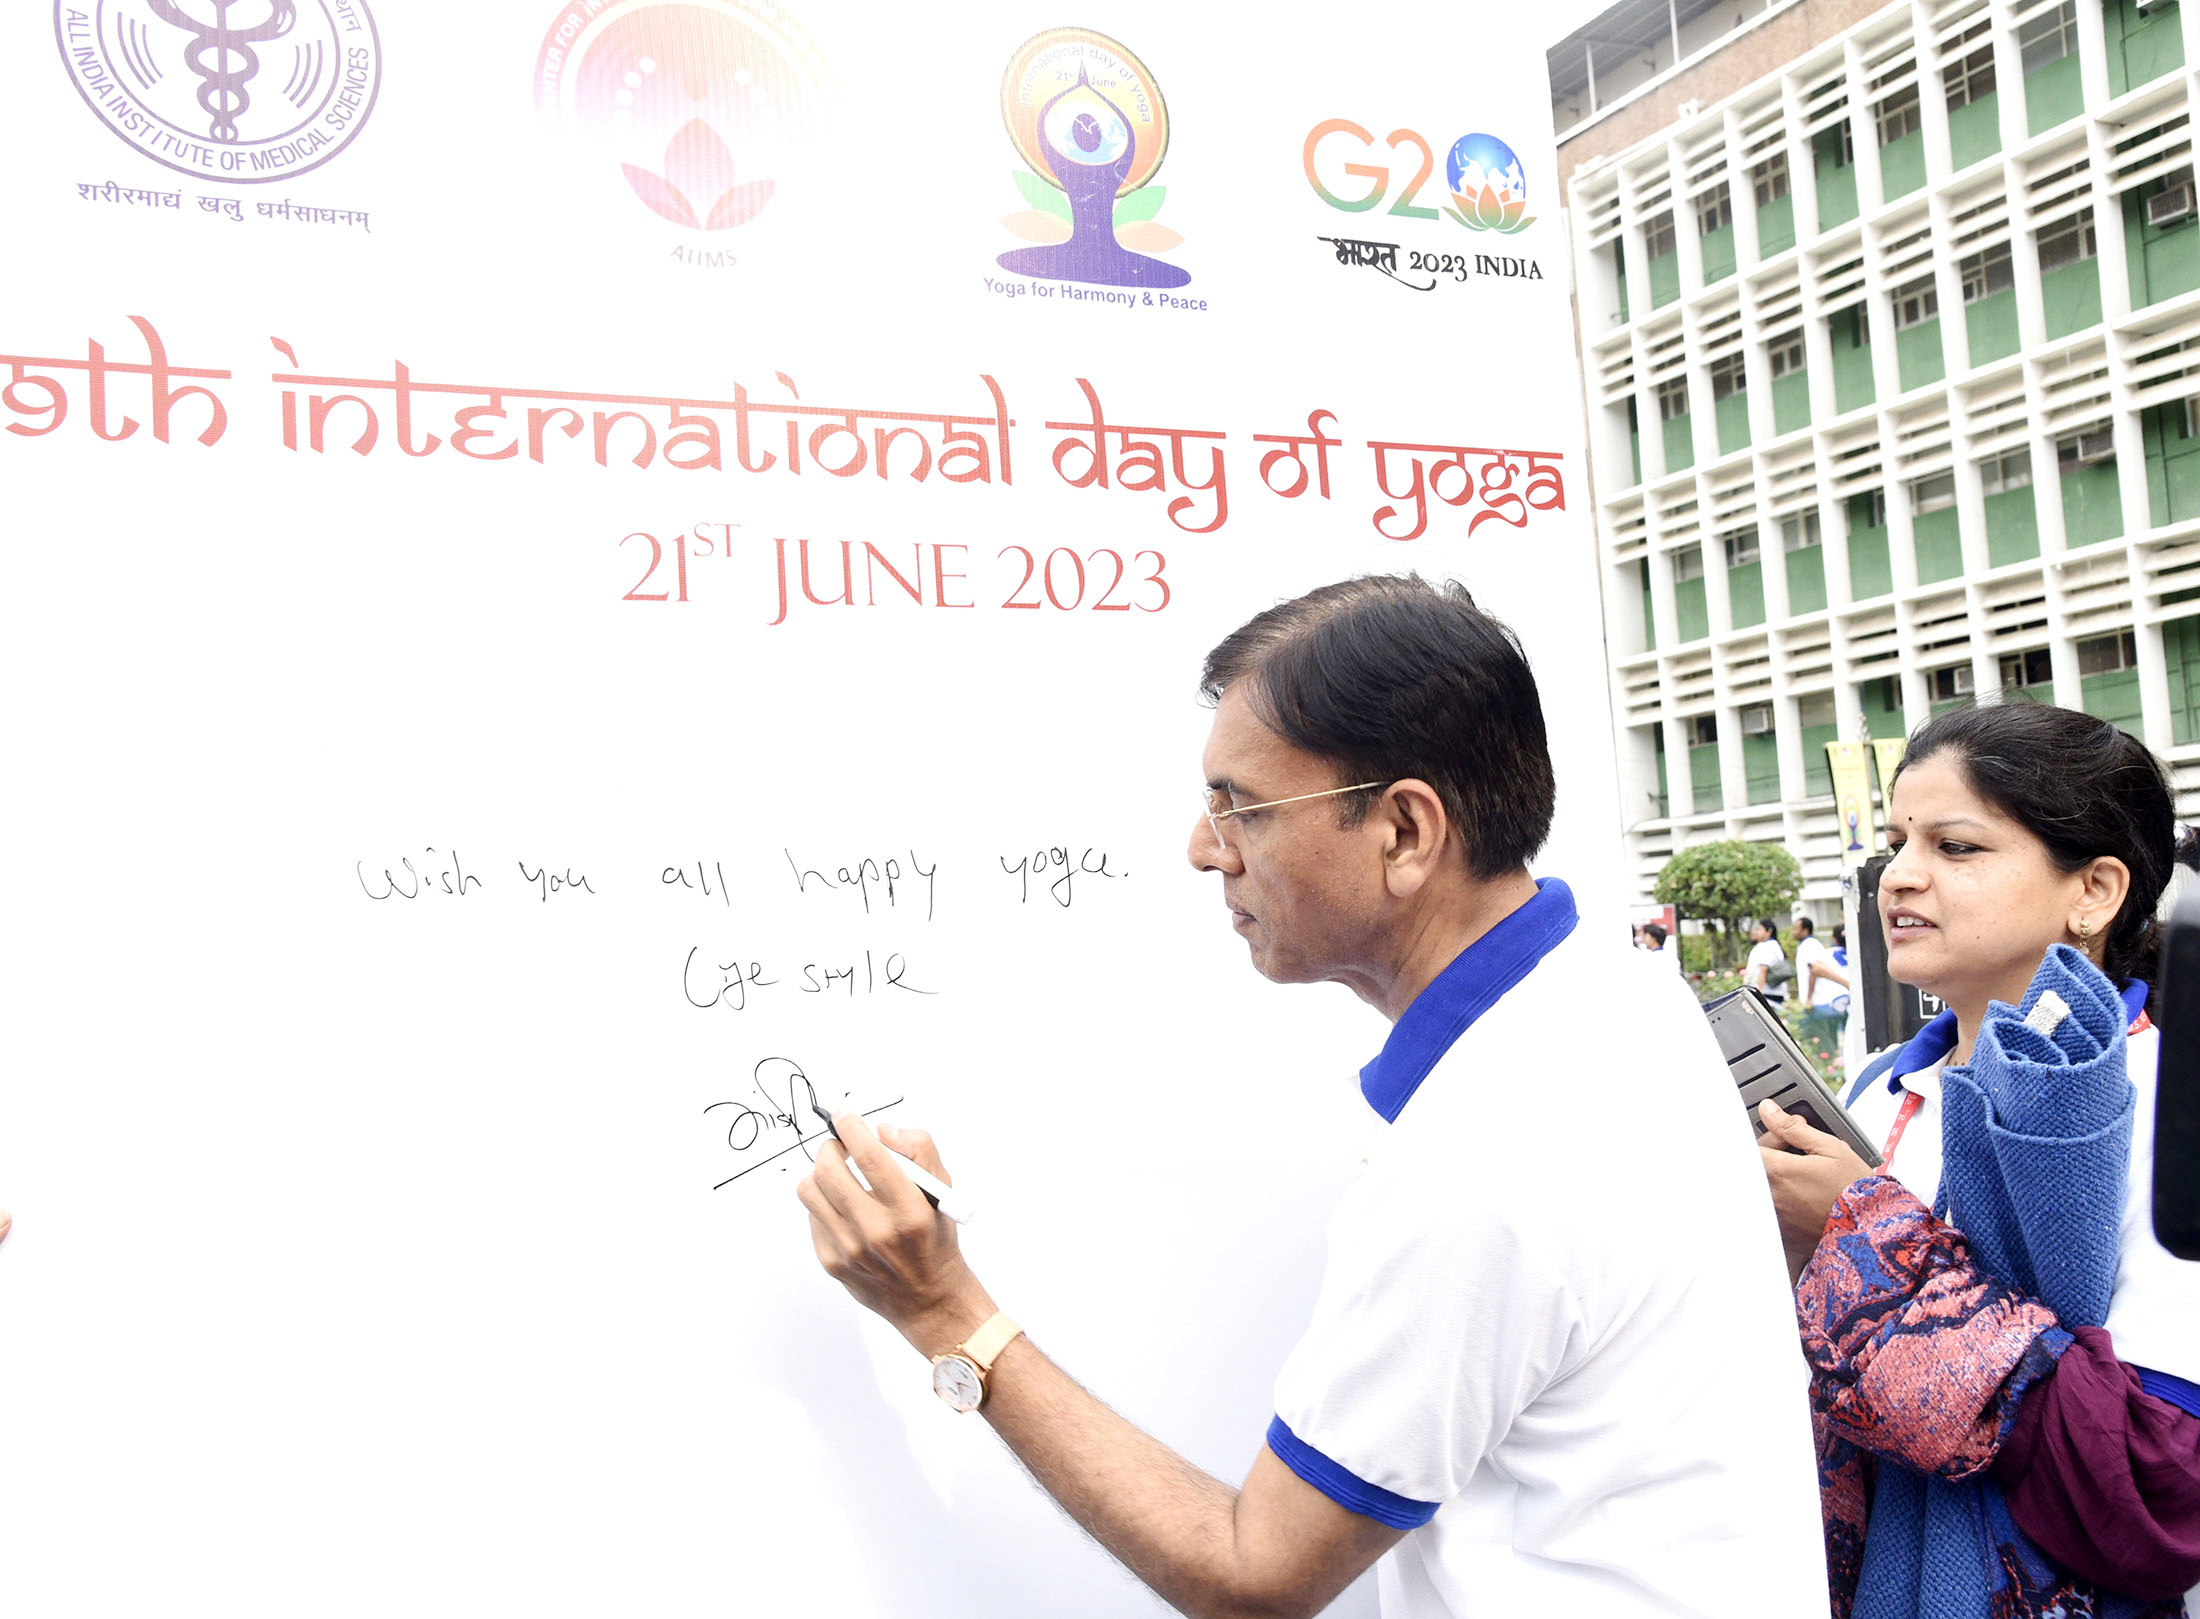 ALL INDIA INSTITUTE OF MEDICAL SCIENCES
शरीरमाद्यं खलु धर्मसाधनम्
AIIMS
international day of yoga
21st June
Yoga for Harmony & Peace
G20
भारत 2023 INDIA
9th international day of yoga
21ST JUNE 2023
Wish you all happy yoga.
Life style